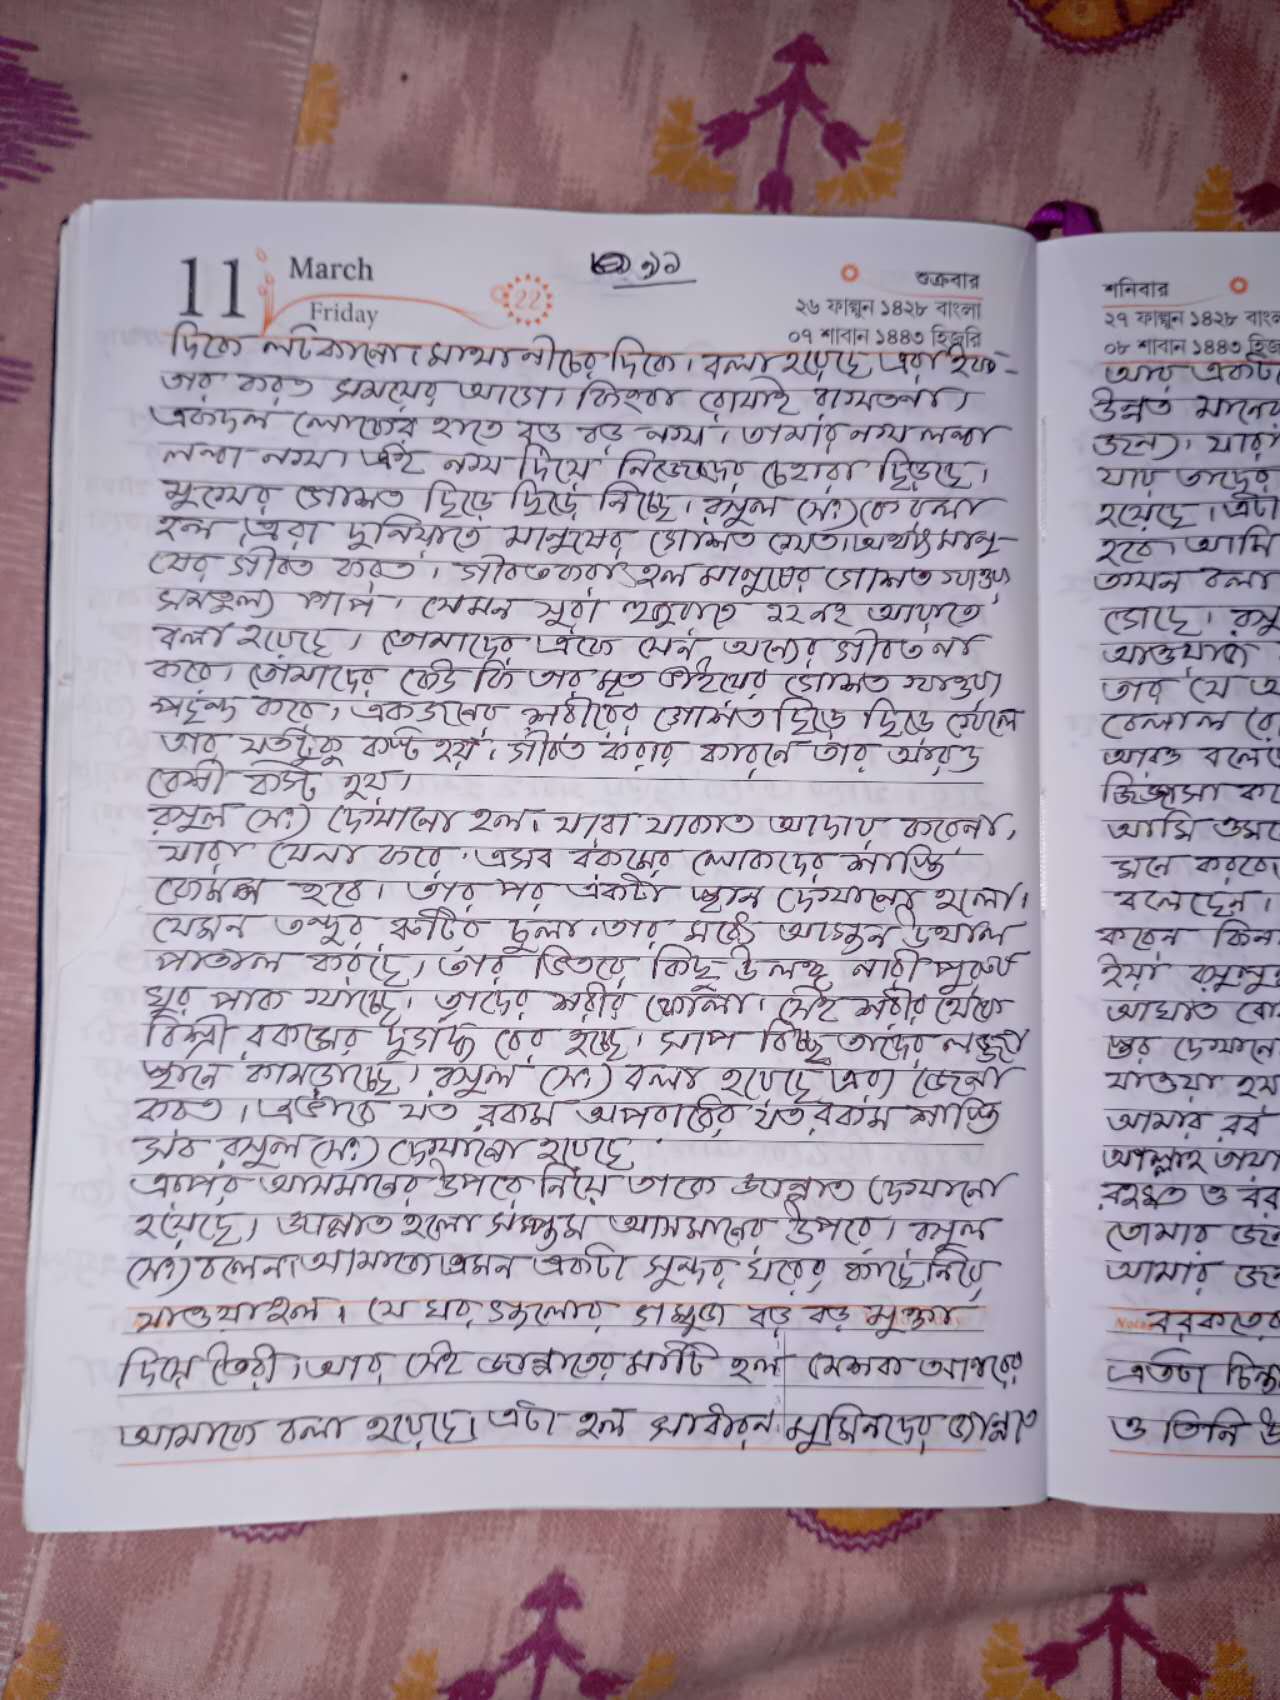 11 March
Friday
22
৯১
শুক্রবার
২৬ ফাল্গুন ১৪২৮ বাংলা
০৭ শাবান ১৪৪৩ হিজরি
দিকে লটকানো। মাথা নীচের দিকে। বলা হয়েছে এরা ইফ-
তার করত সময়ের আগে। কিংবা রোযাই রাখতনা।
একদল লোকের হাতে বড় বড় নখ। তামার নখ লম্বা
লম্বা নখ। এই নখ দিয়ে নিজেদের চেহারা ছিড়ছে।
মুখের গোশত ছিড়ে ছিড়ে নিচ্ছে। রসুল (সঃ) কে বলা
হল এরা দুনিয়াতে মানুষের গোশত খেত। অর্থাৎ মানু-
ষের গীবত করত। গীবত করা হল মানুষের গোশত খাওয়া
সমতুল্য পাপ। যেমন সুরা হুজুরাতে ১২নং আয়াতে
বলা হয়েছে। তোমাদের একে যেন অন্যের গীবত না
করে। তোমাদের কেউ কি তার মৃত ভাইয়ের গোশত খাওয়া
পছন্দ করে। একজনের শরীরের গোশত ছিড়ে ছিড়ে খেলে
তার যতটুকু কষ্ট হয়। গীবত করার কারনে তার আরও
বেশী কস্ট হয়।
রসুল (সঃ) দেখানো হল। যারা যাকাত আদায় করেনা,
যারা যেনা করে। এসব রকমের লোকদের শাস্তি
কেমন হবে। তার পর একটা স্থান দেখানো হলো।
যেমন তন্দুর রুটির চুলা। তার মধ্যে আগুন উথাল
পাতাল করছে। তার ভিতরে কিছু উলঙ্গ নারী পুরুষ
ঘুর পাক খাচ্ছে। তাদের শরীর ফোলা। সেই শরীর থেকে
বিশ্রী রকমের দুর্গন্ধ বের হচ্ছে। সাপ বিচ্ছু তাদের লজ্জা
স্থানে কামড়াচ্ছে। রসুল (সঃ) বলা হয়েছে এরা জেনা
করত। এভাবে যত রকম অপরাধের যত রকম শাস্তি
সব রসুল (সঃ) দেখানো হয়েছে।
এরপর আসমানের উপরে নিয়ে তাকে জান্নাত দেখানো
হয়েছে। জান্নাত হলো সপ্তম আসমানের উপরে। রসুল
(সঃ) বলেন। আমাকে এমন একটা সুন্দর ঘরের কাছে নিয়ে
যাওয়া হল। যে ঘর গুলোর গম্বুজ বড় বড় মুক্তা
দিয়ে তৈরী। আর সেই জান্নাতের মাটি হল মেশক আম্বরের
আমাকে বলা হয়েছে। এটা হল সাধারন মুমিনদের জান্নাত
শনিবার
২৭ ফাল্গুন ১৪২৮
০৮ শাবান ১৪৪৩
আর একটা
উন্নত মানের
জন্য। যারা
যায় তাদের
হয়েছে। এটা
হবে। আমি
তখন বলা
গেছে।
তার যে
বেলাল
আরও
জিজ্ঞাসা
আমি
মনে করবে।
বলেছেন।
করেন কিনা
ইয়া
আঘাত
যাওয়া হয়
আমার
আল্লাহ
রহমত ও
তোমার
আমার
বরকতের
এতটা
ও তিনি